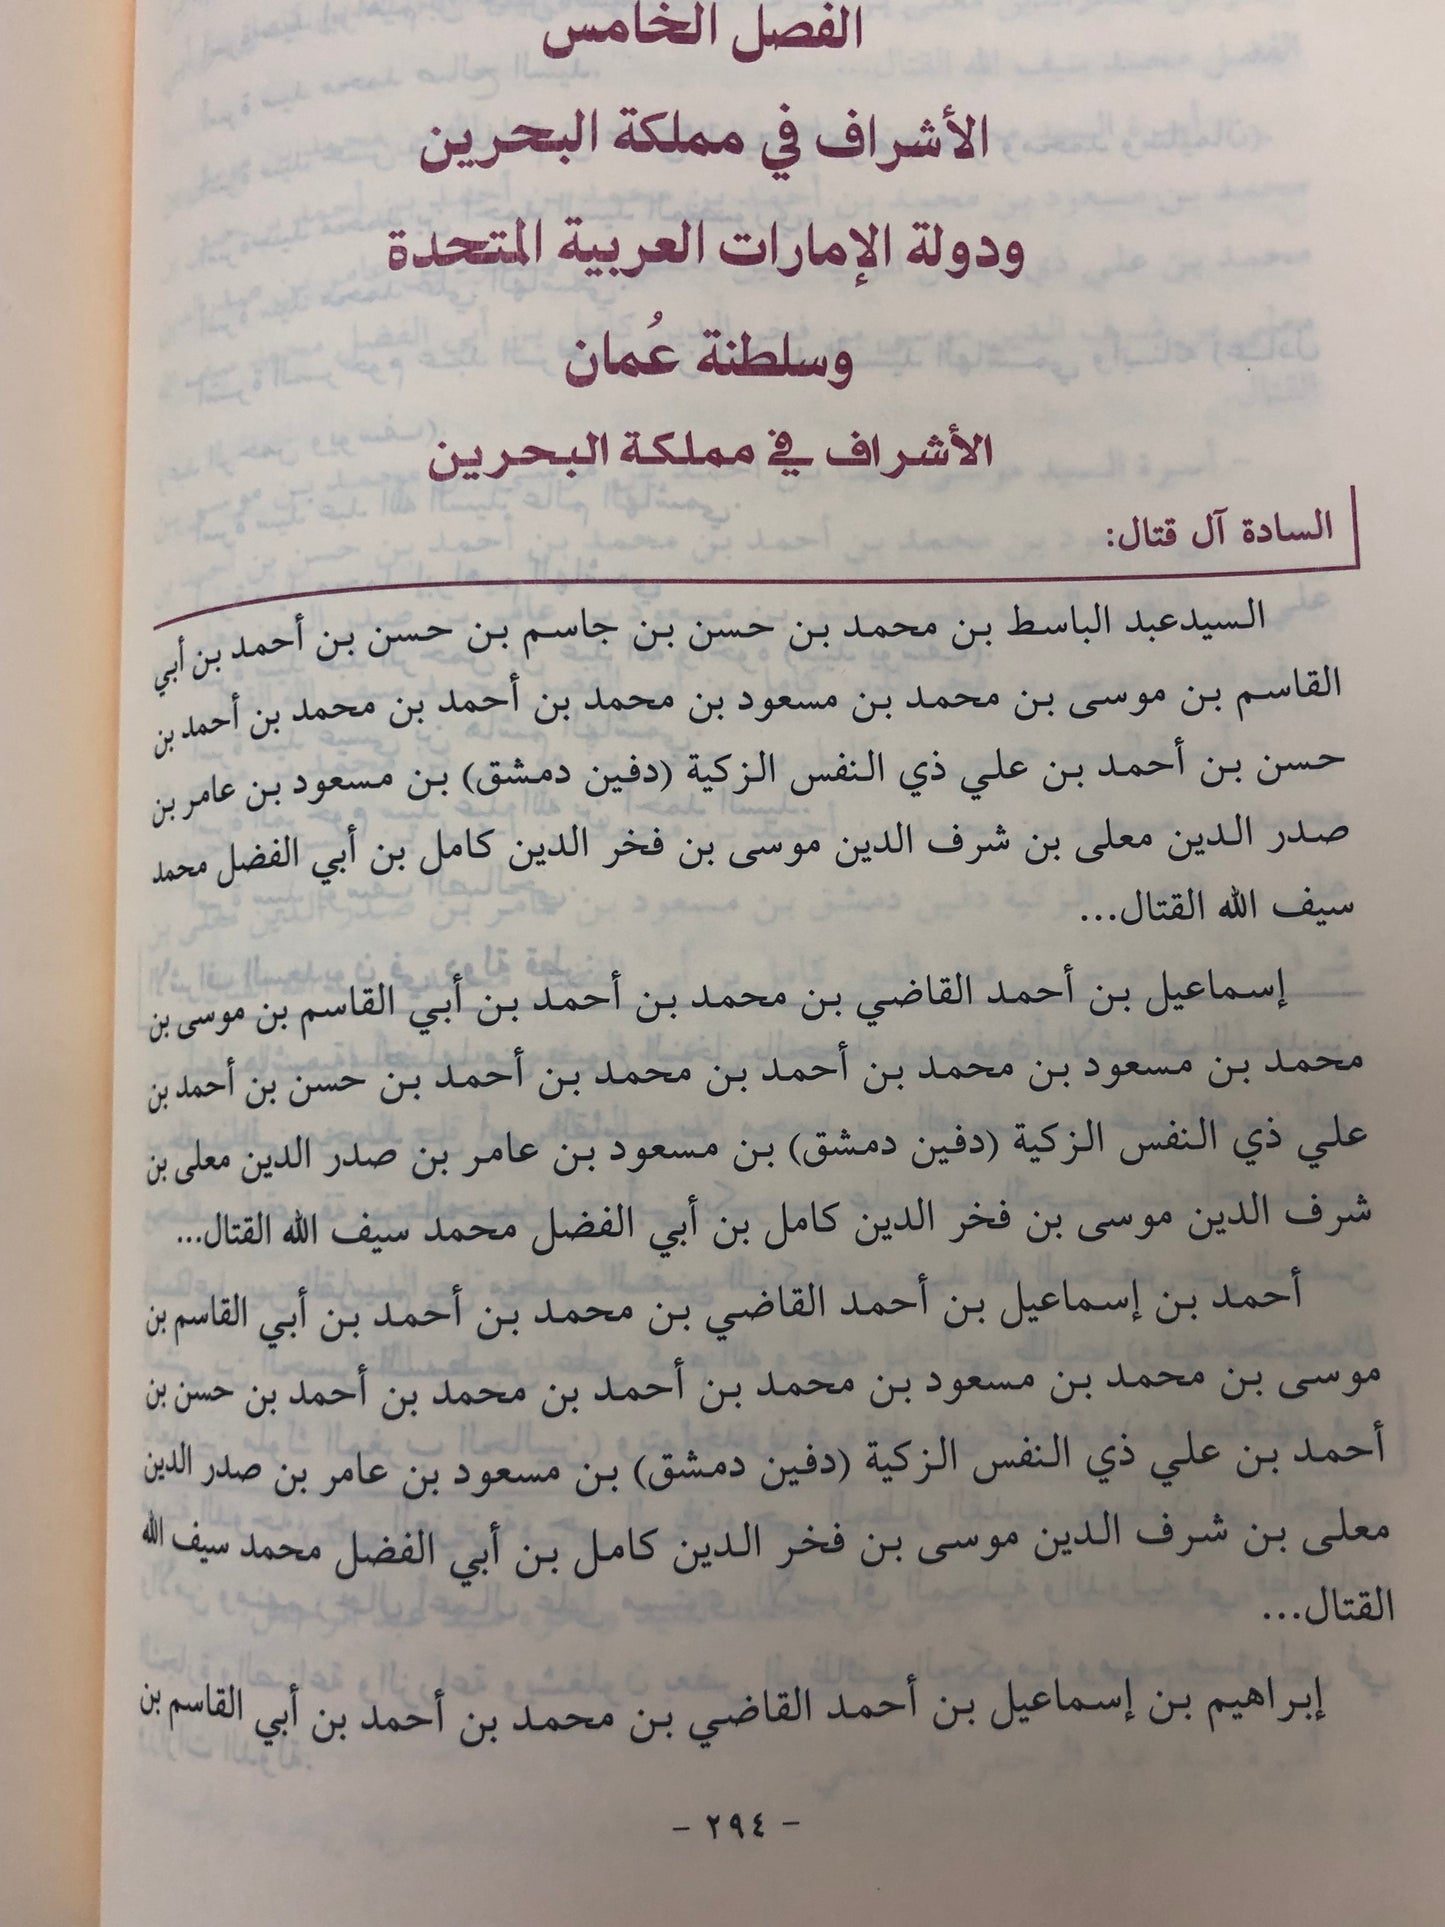 الفصل الخامس
الأشراف في مملكة البحرين
ودولة الإمارات العربية المتحدة
وسلطنة عُمان
الأشراف في مملكة البحرين
السادة آل قتال:
السيدعبد الباسط بن محمد بن حسن بن جاسم بن حسن بن أحمد بن أبي
القاسم بن موسى بن محمد بن مسعود بن محمد بن أحمد بن محمد بن أحمد بن
حسن بن أحمد بن علي ذي النفس الزكية (دفين دمشق) بن مسعود بن عامر بن
صدر الدين معلى بن شرف الدين موسى بن فخر الدين كامل بن أبي الفضل محمد
سيف الله القتال...
إسماعيل بن أحمد القاضي بن محمد بن أحمد بن أبي القاسم بن موسى بن
محمد بن مسعود بن محمد بن أحمد بن محمد بن أحمد بن حسن بن أحمد بن
علي ذي النفس الزكية (دفين دمشق) بن مسعود بن عامر بن صدر الدين معلى بن
شرف الدين موسى بن فخر الدين كامل بن أبي الفضل محمد سيف الله القتال...
أحمد بن إسماعيل بن أحمد القاضي بن محمد بن أحمد بن أبي القاسم بن
موسى بن محمد بن مسعود بن محمد بن أحمد بن محمد بن أحمد بن حسن بن
أحمد بن علي ذي النفس الزكية (دفين دمشق) بن مسعود بن عامر بن صدر الدين
معلى بن شرف الدين موسى بن فخر الدين كامل بن أبي الفضل محمد سيف الله
القتال...
إبراهيم بن إسماعيل بن أحمد القاضي بن محمد بن أحمد بن أبي القاسم بن
- ٢٩٤ -